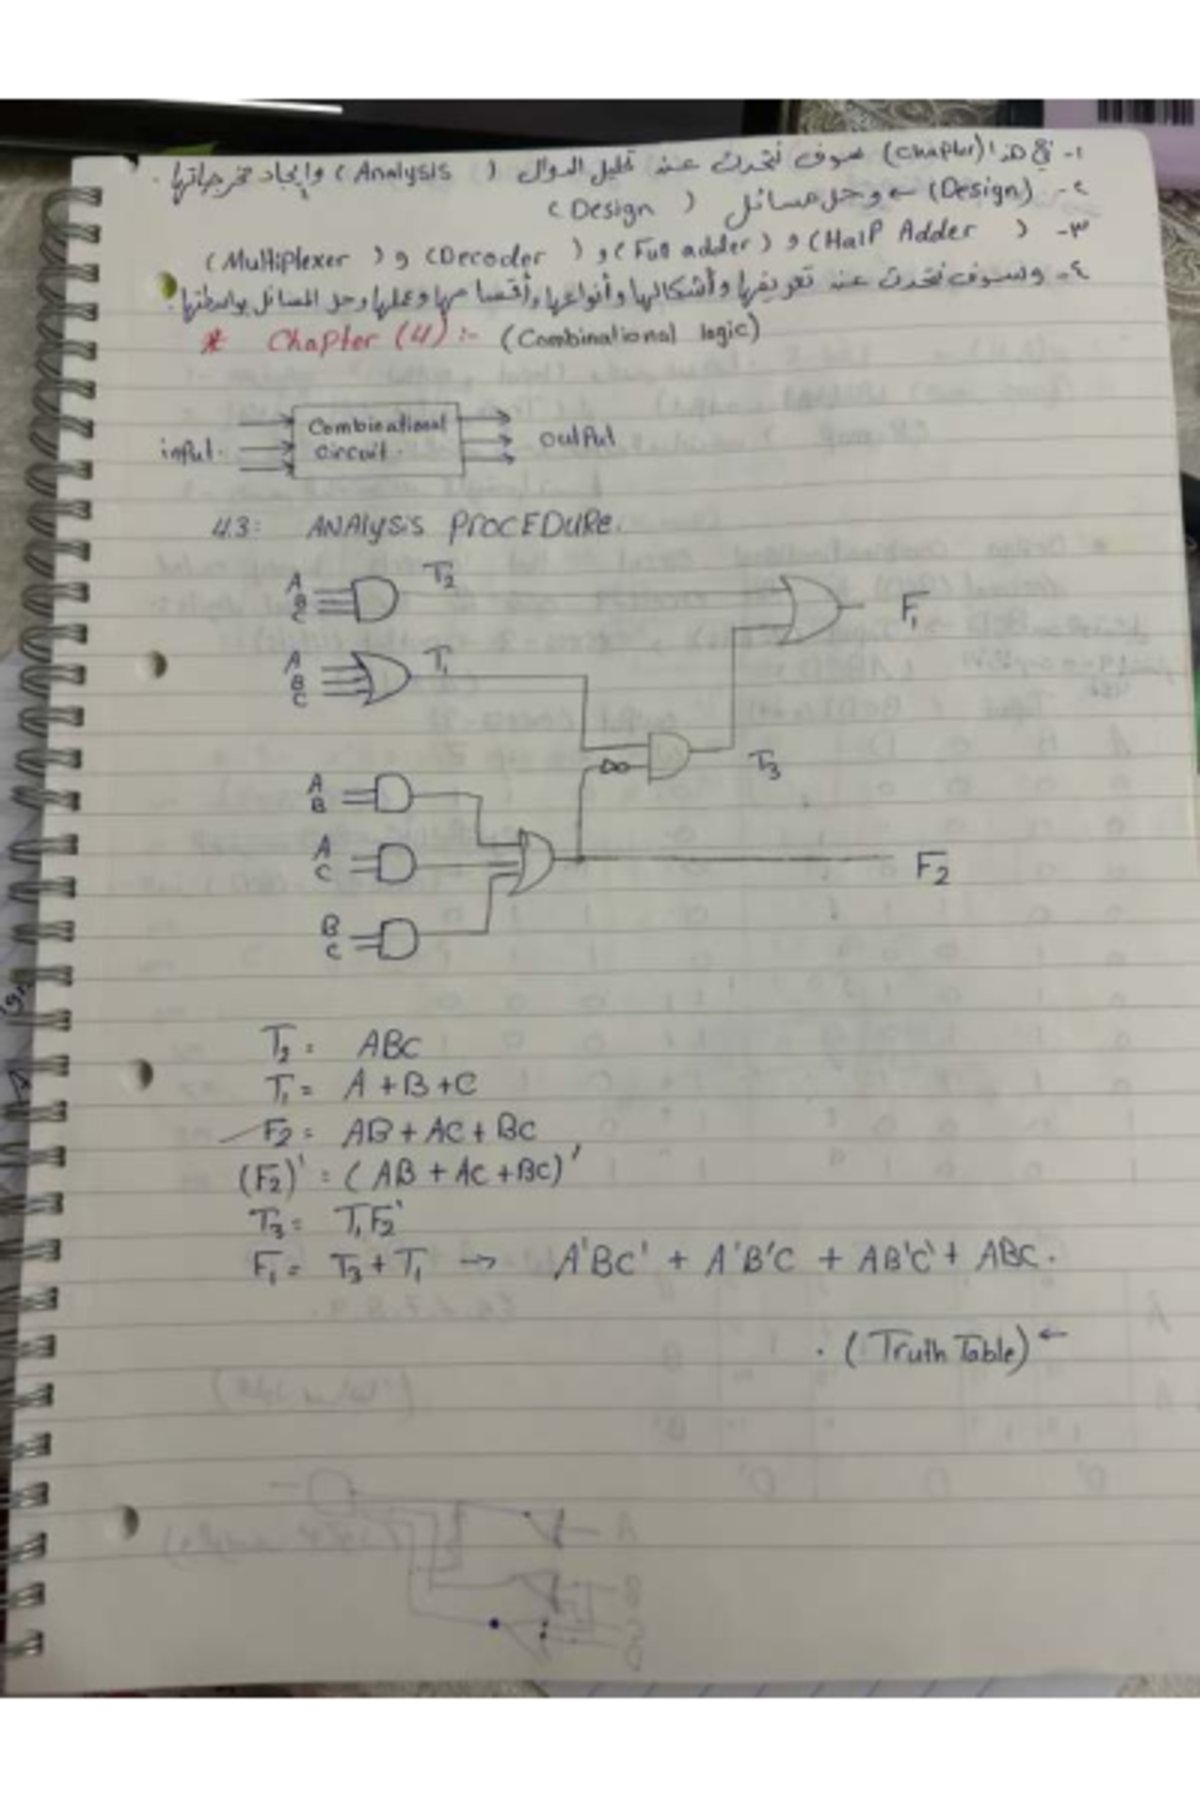 ١- في هذا (chapter) سوف نتحدث عند تحليل الدوال (Analysis) وإيجاد مخرجاتها.
٢- (Design) ← وحل مسائل (Design)
٣- (Half Adder) و (Full adder) و (Decoder) و (Multiplexer)
٤- وسوف نتحدث عند تعريفها وأشكالها وأنواعها وأقسامها وعملها وحل المسائل بواسطتها.
* Chapter (4) :- (Combinational logic)
input. Combinational circuit. output
4.3: ANAlysis PROCEDURE.
A B C T2
F1
A B C T1
T3
A B
A C
F2
B C
T2 = ABC
T1 = A + B + C
F2 = AB + AC + BC
(F2)' = (AB + AC + BC)'
T3 = T1F2'
F1 = T3 + T1 → A'BC' + A'B'C + AB'C' + ABC.
← (Truth Table).